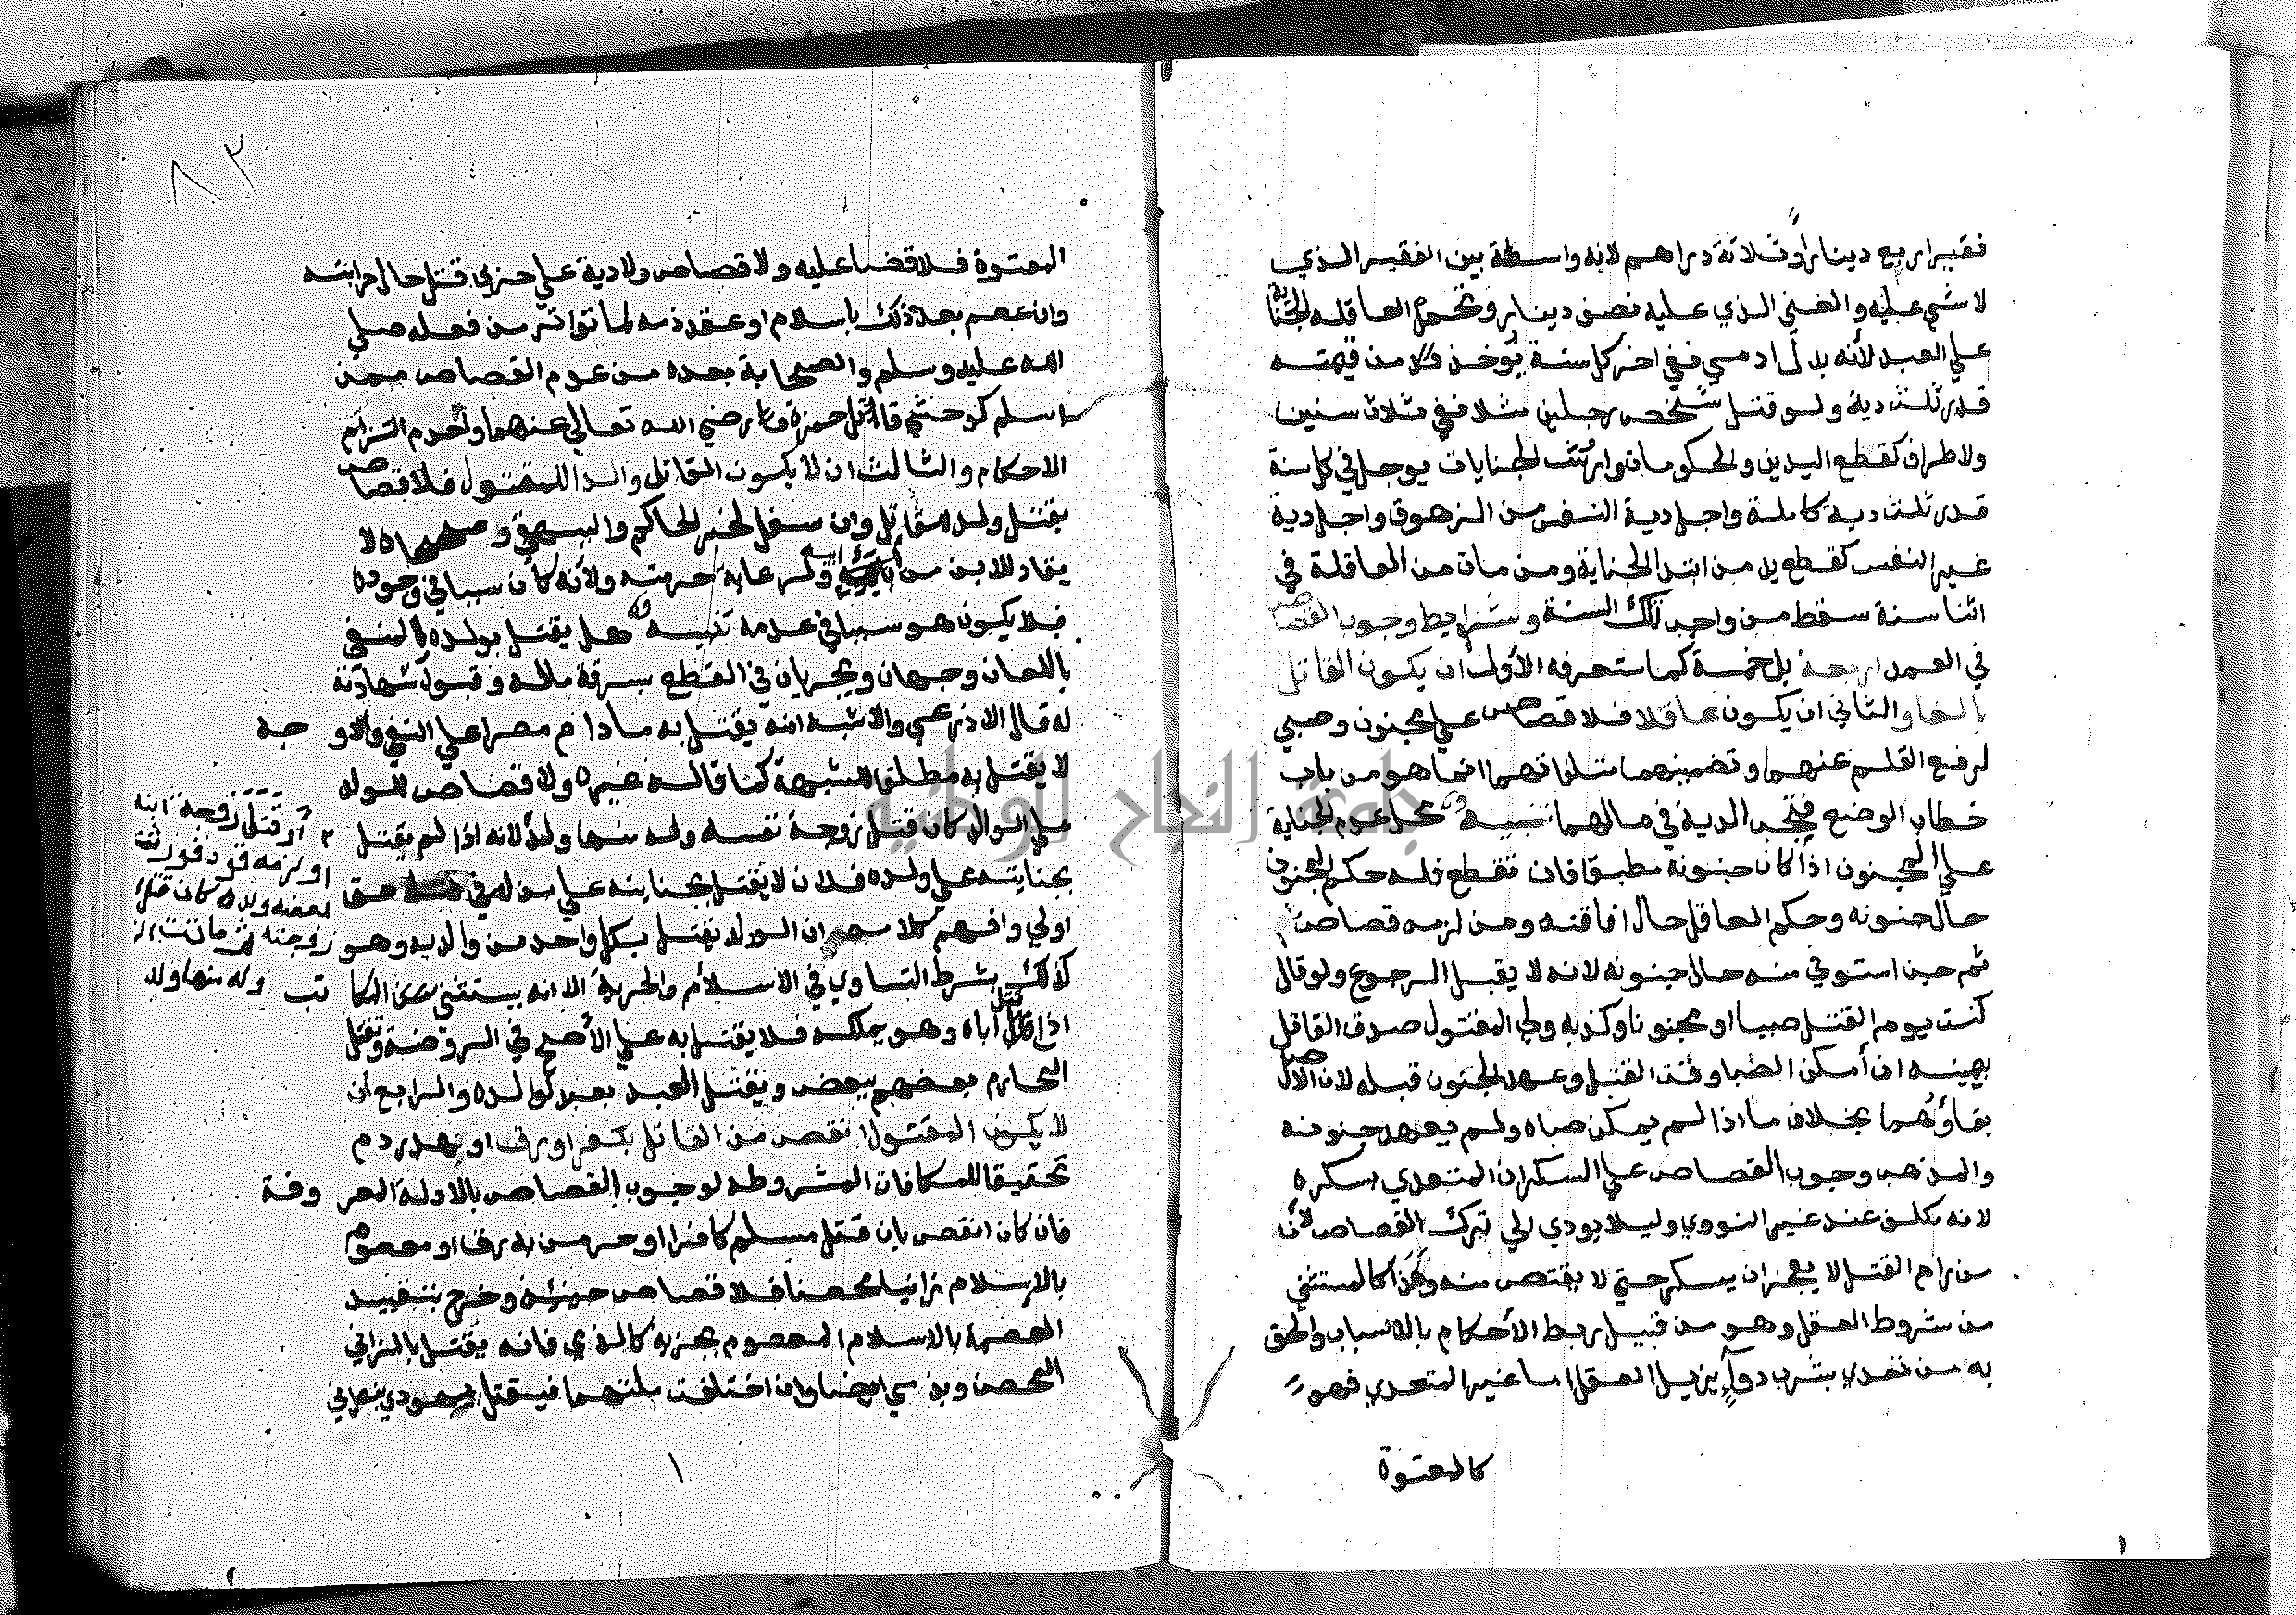 فقيرا ربع دينار أو ثلاثة دراهم لانه واسطة بين الفقير الذي
لا شي عليه والغني الذي عليه نصف دينار وتحمل العاقله الجناية
علي العبد لأنه بدل ادمي ففي اخر كل سنة يوخذ من قيمته
قدر ثلث دية ولو قتل شخص رجلين مثلا ففي ثلاث سنين
ولاطراف كقطع اليدين والحكومات وارش الجنايات يوجل في كل سنة
قدر ثلث دية كاملة واجل دية النفس من الزهوق واجل دية
غير النفس كقطع يد من ابتدا الجناية ومن مات من العاقلة في
اثنا سنة سقط من واجب تلك السنة وشرايط وجوب القصاص
في العمد اربعة بل خمسة كما ستعرفه الأول ان يكون القاتل
بالغا والثاني ان يكون عاقلا فلا قصاص علي مجنون وصبي
لرفع القلم عنهما وتضمينهما متلفاتهما انما هو من باب
خطاب الوضع فتجب الدية في مالهما تنبيه محل عدم الجناية
علي المجنون اذا كان جنونه مطبقا فان تقطع فله حكم المجنون
حال جنونه وحكم العاقل حال افاقته ومن لزمه قصاص
ثم جن استوفي منه حال جنونه لانه لا يقبل الرجوع ولو قال
كنت يوم القتل صبيا او مجنونا وكذبه ولي المقتول صدق القاتل
بيمينه ان أمكن الصبا وقت القتل وعهد الجنون قبله لان الاصل
بقاؤهما بخلاف ما اذا لم يمكن صباه ولم يعهد جنونه
والمذهب وجوب القصاص علي السكران المتعدي بسكره
لانه مكلف عند غير النووي وليلا يودي الي ترك القصاص لأن
من رام القتل لا يعجز ان يسكر حتي لا يقتص منه وهذا كالمستثني
من شروط العقل وهو من قبيل ربط الأحكام بالاسباب والحق
به من تعدي بشرب دواء يزيل العقل اما غير المتعدي فهو
كالمعتوة
٨٢
المعتوة فلا قضا عليه ولا قصاص ولا دية علي حربي قتل حال حرابته
وان عصم بعد ذلك باسلام او عقد ذمه لما تواتر من فعله صلي
الله عليه وسلم والصحابة بعده من عدم القصاص ممن
اسلم كوحشي قاتل حمزة رضي الله تعالي عنهما ولعدم التزام
الاحكام والثالث ان لا يكون القاتل والدا للمقتول فلا قصاص
بقتل ولد القاتل وان سفل لخبر الحاكم والبيهقي وصححاه لا
يقاد للابن من ابيه ولرعاية حرمته ولأنه كان سببا في وجوده
فلا يكون هو سببا في عدمه تنبيه هل يقتل بولده المنفي
باللعان وجهان ويجريان في القطع بسرقة ماله وقبول شهادته
له قال الاذرعي والاشبه انه يقتل به مادام مصرا علي النفي والاوجه
لا يقتل به مطلقا للشبهة كما قاله غيره ولا قصاص للولد
علي الوالد كان قتل زوجة نفسه وله منها ولد لانه اذا لم يقتل
بجنايته علي ولده فلان لا يقتل بجنايته علي من له في حق
اولي وافهم كلامهم ان الولد يقتل بكل واحد من والديه وهو
كذلك بشرط التساوي في الاسلام والحرية الا انه يستثني من المكاتب
اذا قتل أباه وهو يملكه فلا يقتل به علي الأصح في الروضة وتقتل
المحارم بعضهم ببعض ويقتل العبد بعبد لوالده والرابع أن
لا يكون المقتول انقص من القاتل بكفر او رق او بهدر دم
تحقيقا للمكافاة المشروطه لوجوب القصاص بالادلة المعروفة
فان كان انقص بان قتل مسلم كافرا او حر من به رق او معصوم
بالاسلام زانيا محصنا فلا قصاص حينئذ وخرج بتقييد
العصمة بالاسلام المعصوم بجزية كالذمي فانه يقتل بالزاني
المحصن وبذمي ايضا وان اختلفت ملتهما فيقتل يهودي بنصراني
او قتل زوجة ابنه
او لزمه قود فورث
بعضه ولده كان قتل
زوجته ثم ماتت
وله منها ولد
جامعة النجاح الوطنية